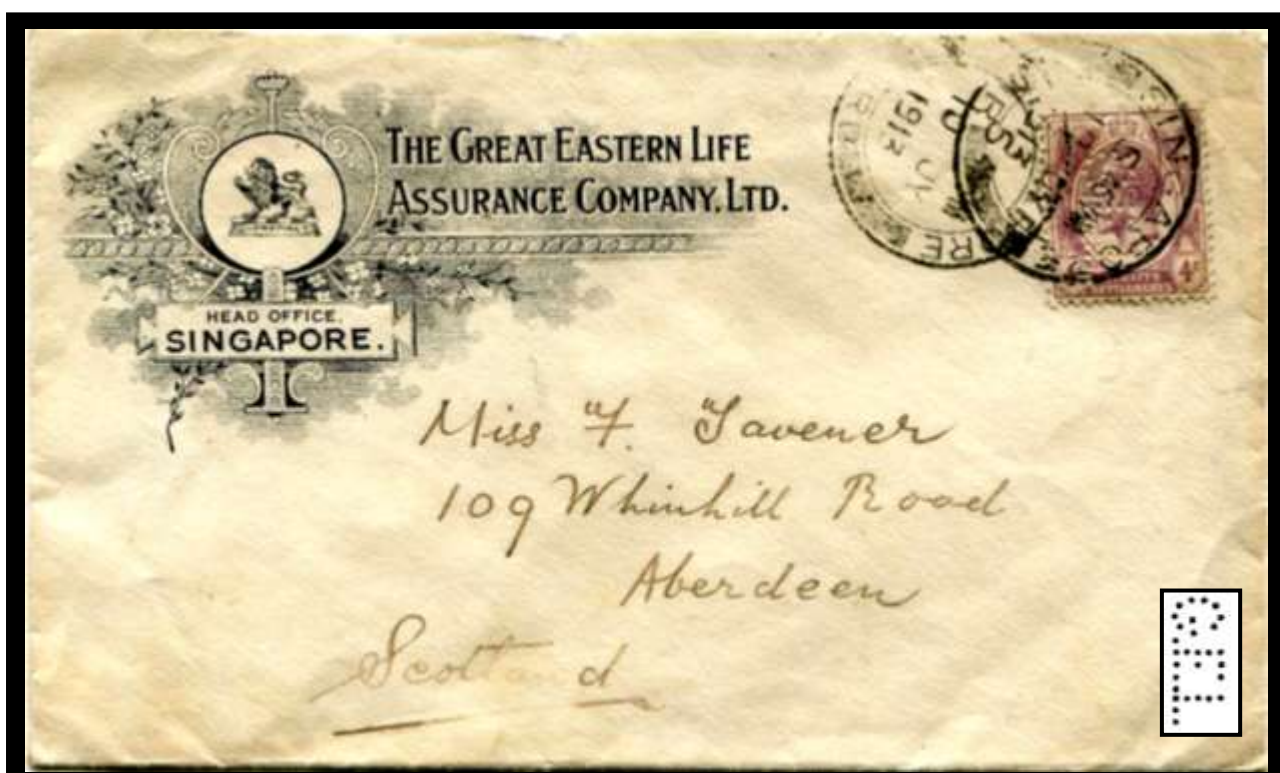 THE GREAT EASTERN LIFE
ASSURANCE COMPANY, LTD.
HEAD OFFICE.
SINGAPORE.
SINGAPO
1913
RE
4
Miss F. Tavener
109 Whinhill Road
Aberdeen
Scotland